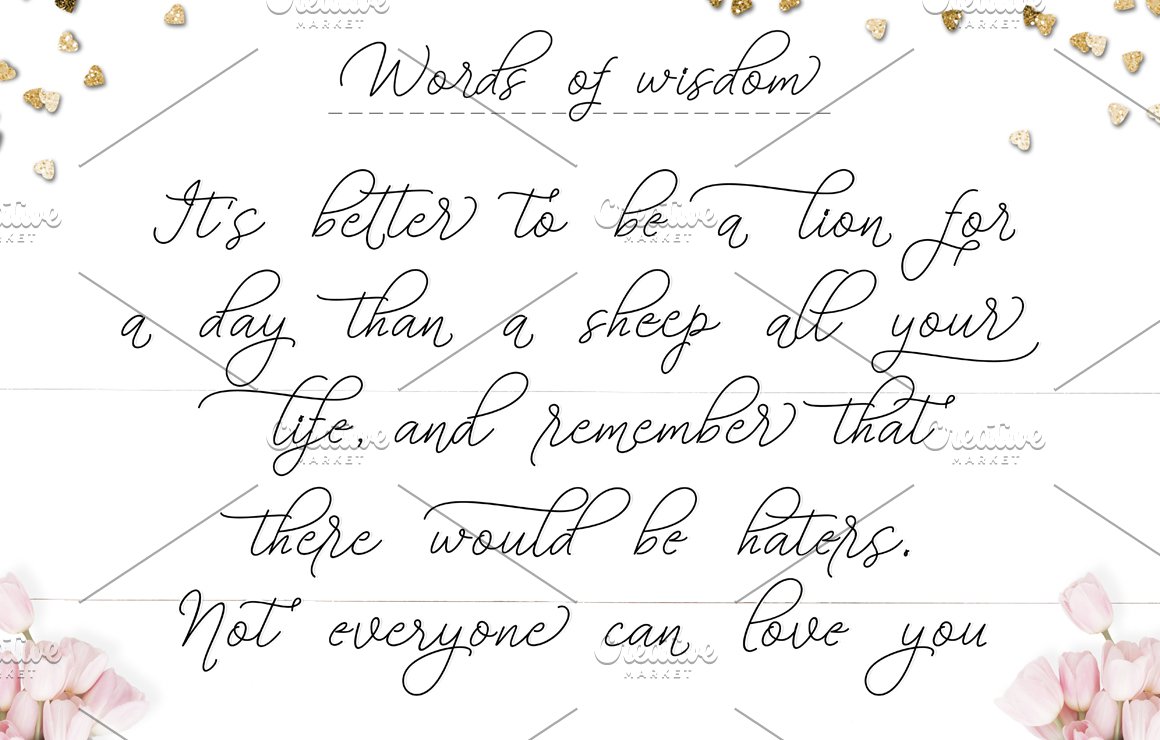 Words of wisdom
It's better to be a lion for
a day than a sheep all your
life, and remember that
there would be haters.
Not everyone can love you
Creative MARKET